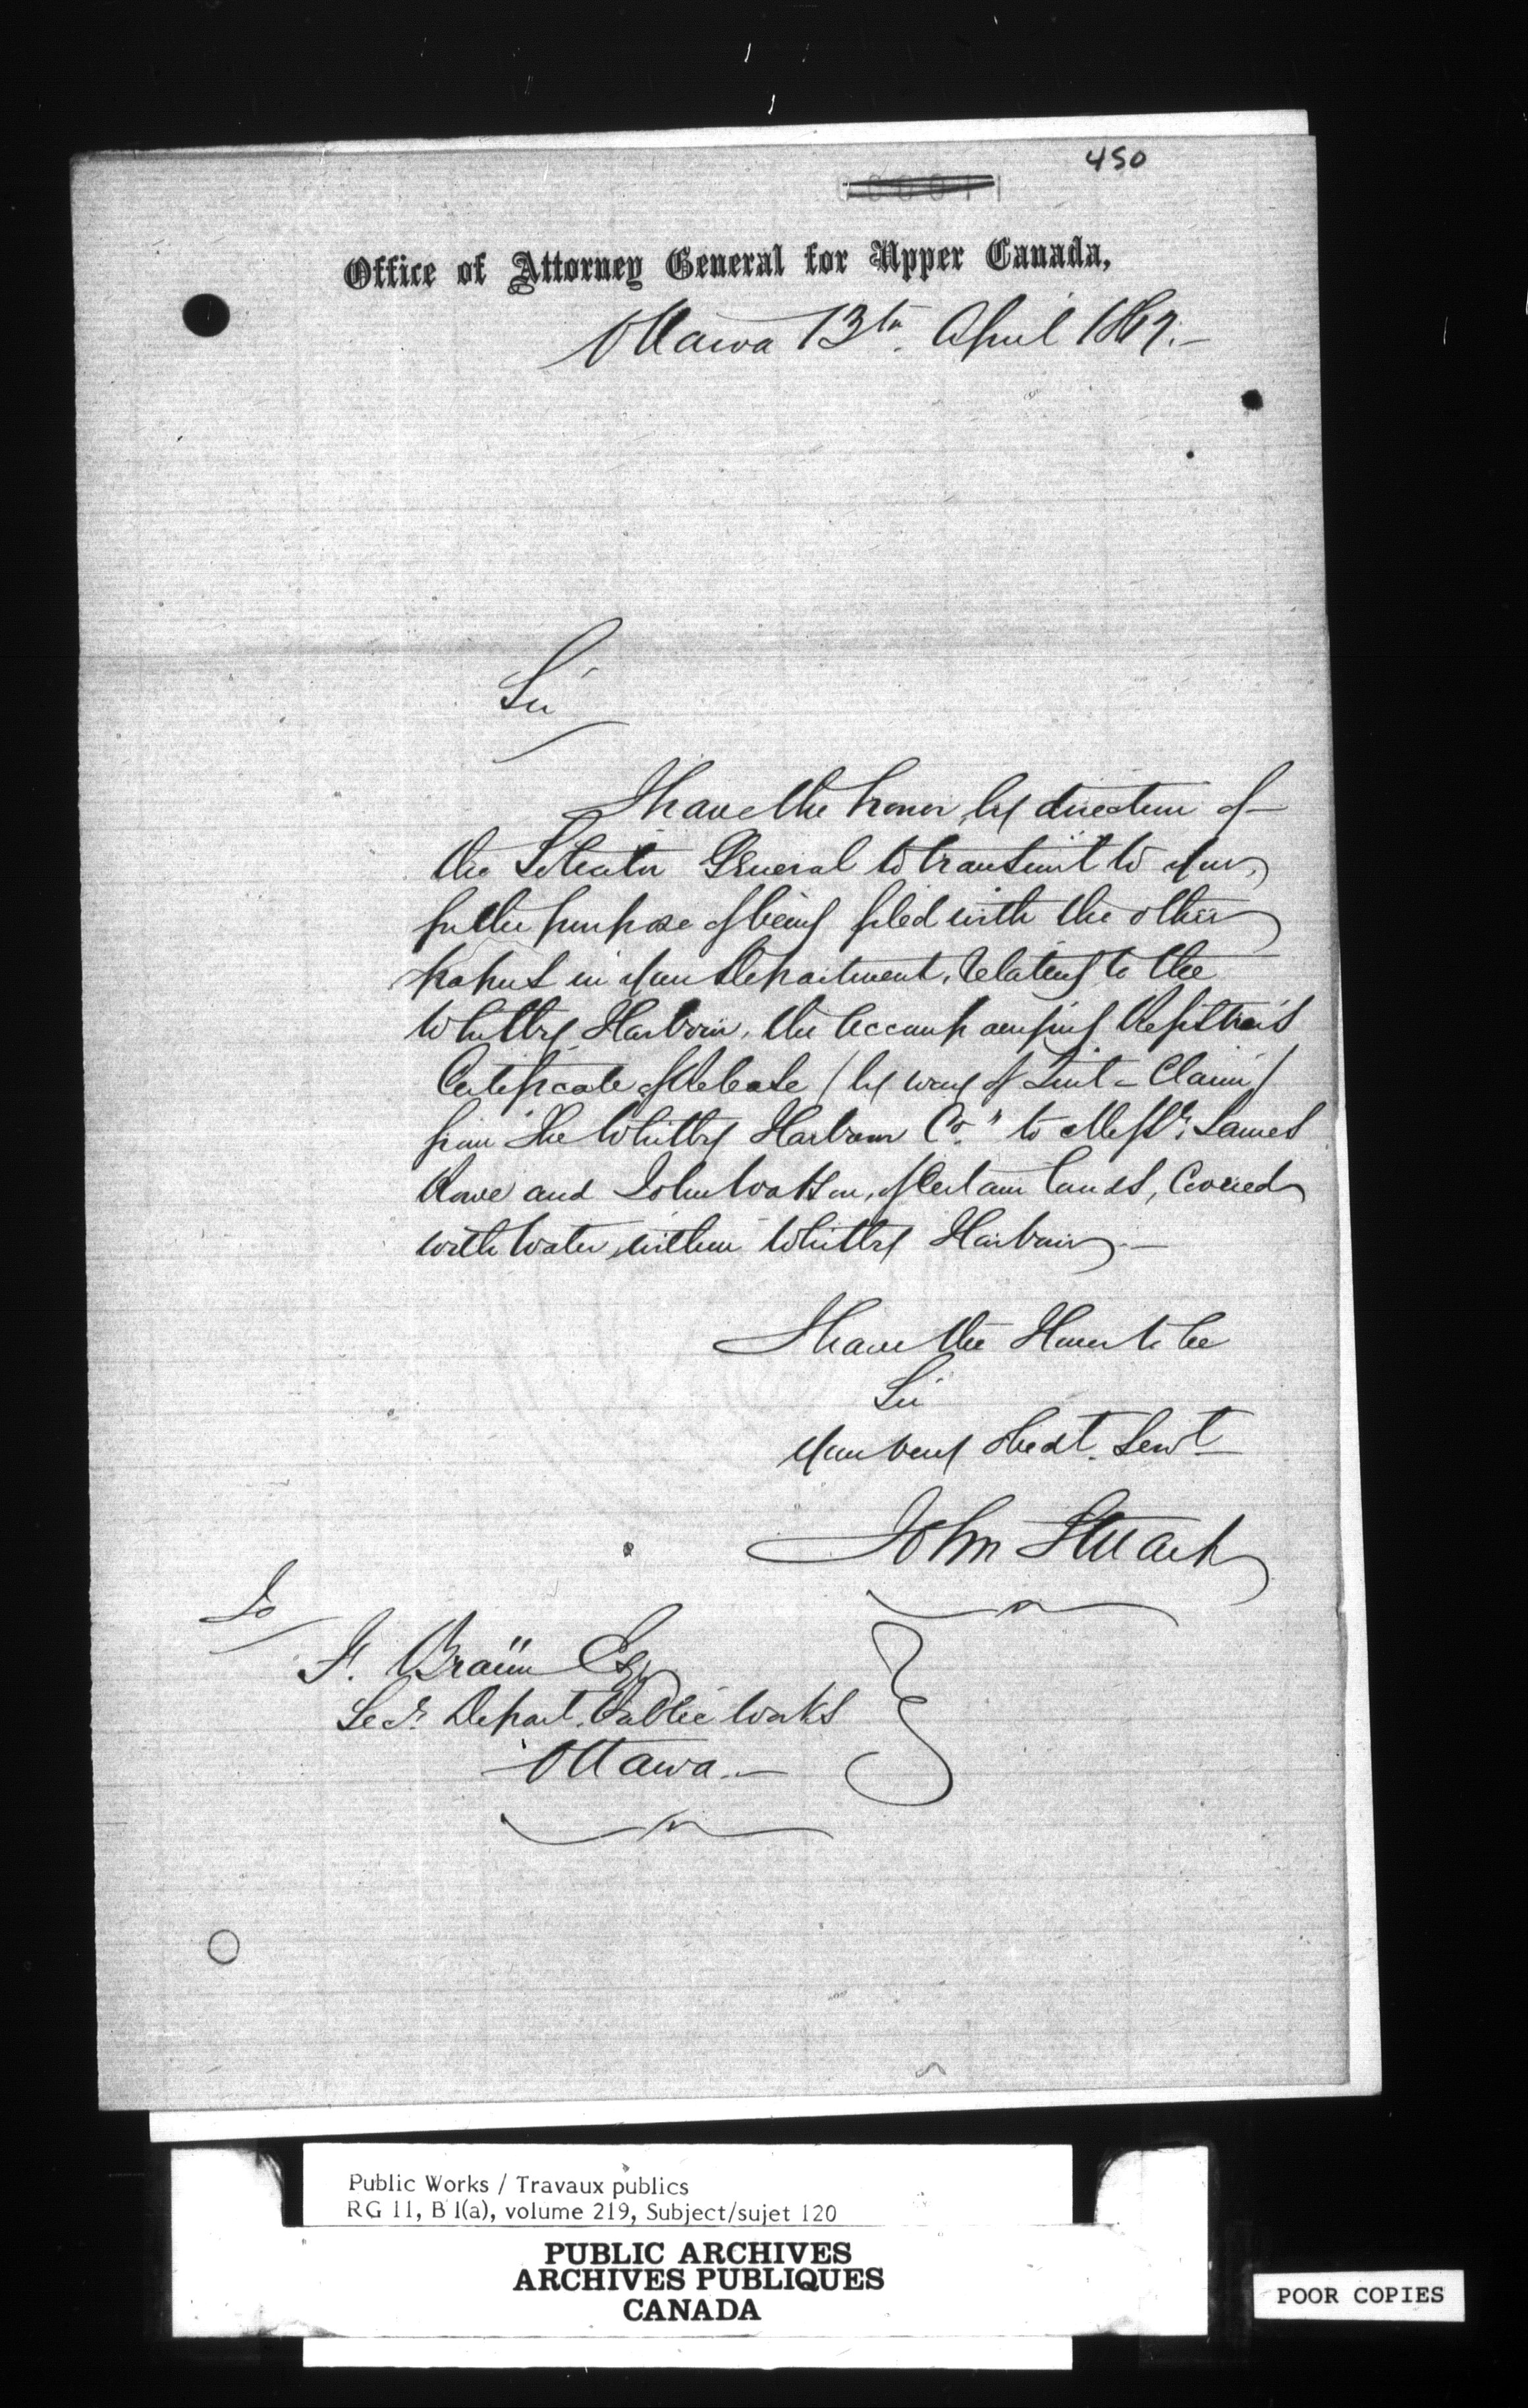 450
Office of Attorney General for Upper Canada,
Ottawa 13th. April 1867.—
Sir
I have the honor, by direction of
the Solicitor General to transmit to you,
for the purpose of being filed with the other
papers in your Department, relating to the
Whitby Harbour, the accompanying Registrar's
Certificate of Release (by way of Quit-Claim)
from "The Whitby Harbour Co." to Messrs. James
Rowe and John Watson, of certain lands, covered
with water, within Whitby Harbour.—
I have the Honor to be
Sir
Your very Obedt. Servt
John Stuart
To
F. Braün Esq
Secy. Depart. Public Works
Ottawa.—
Public Works / Travaux publics
RG 11, B 1(a), volume 219, Subject/sujet 120
PUBLIC ARCHIVES
ARCHIVES PUBLIQUES
CANADA
POOR COPIES